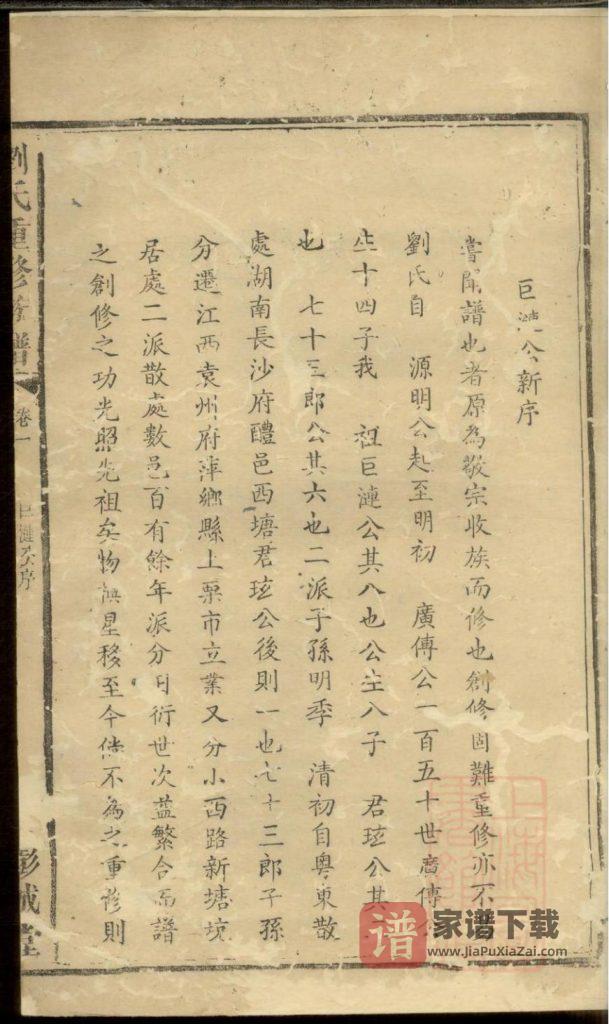 巨漣公新序
嘗聞譜也者原為敬宗收族而修也創修固難重修亦不
劉氏自 源明公起至明初 廣傳公一百五十世廣傳公
生十四子我 祖巨漣公其八也公生八子 君珐公其
也 七十三郎公其六也二派子孫明季 清初自粵東散
處湖南長沙府醴邑西塘君珐公後則一也七十三郎子孫
分遷江西袁州府萍鄉縣上栗市立業又分小西路新塘坑
居處二派散處數邑百有餘年派分日衍世次益繁合而譜
之創修之功光照先祖矣物換星移至今倘不為之重修則
劉氏重修族譜 卷一 巨漣公序 彭城堂
谱 家谱下载
www.JiaPuXiaZai.com